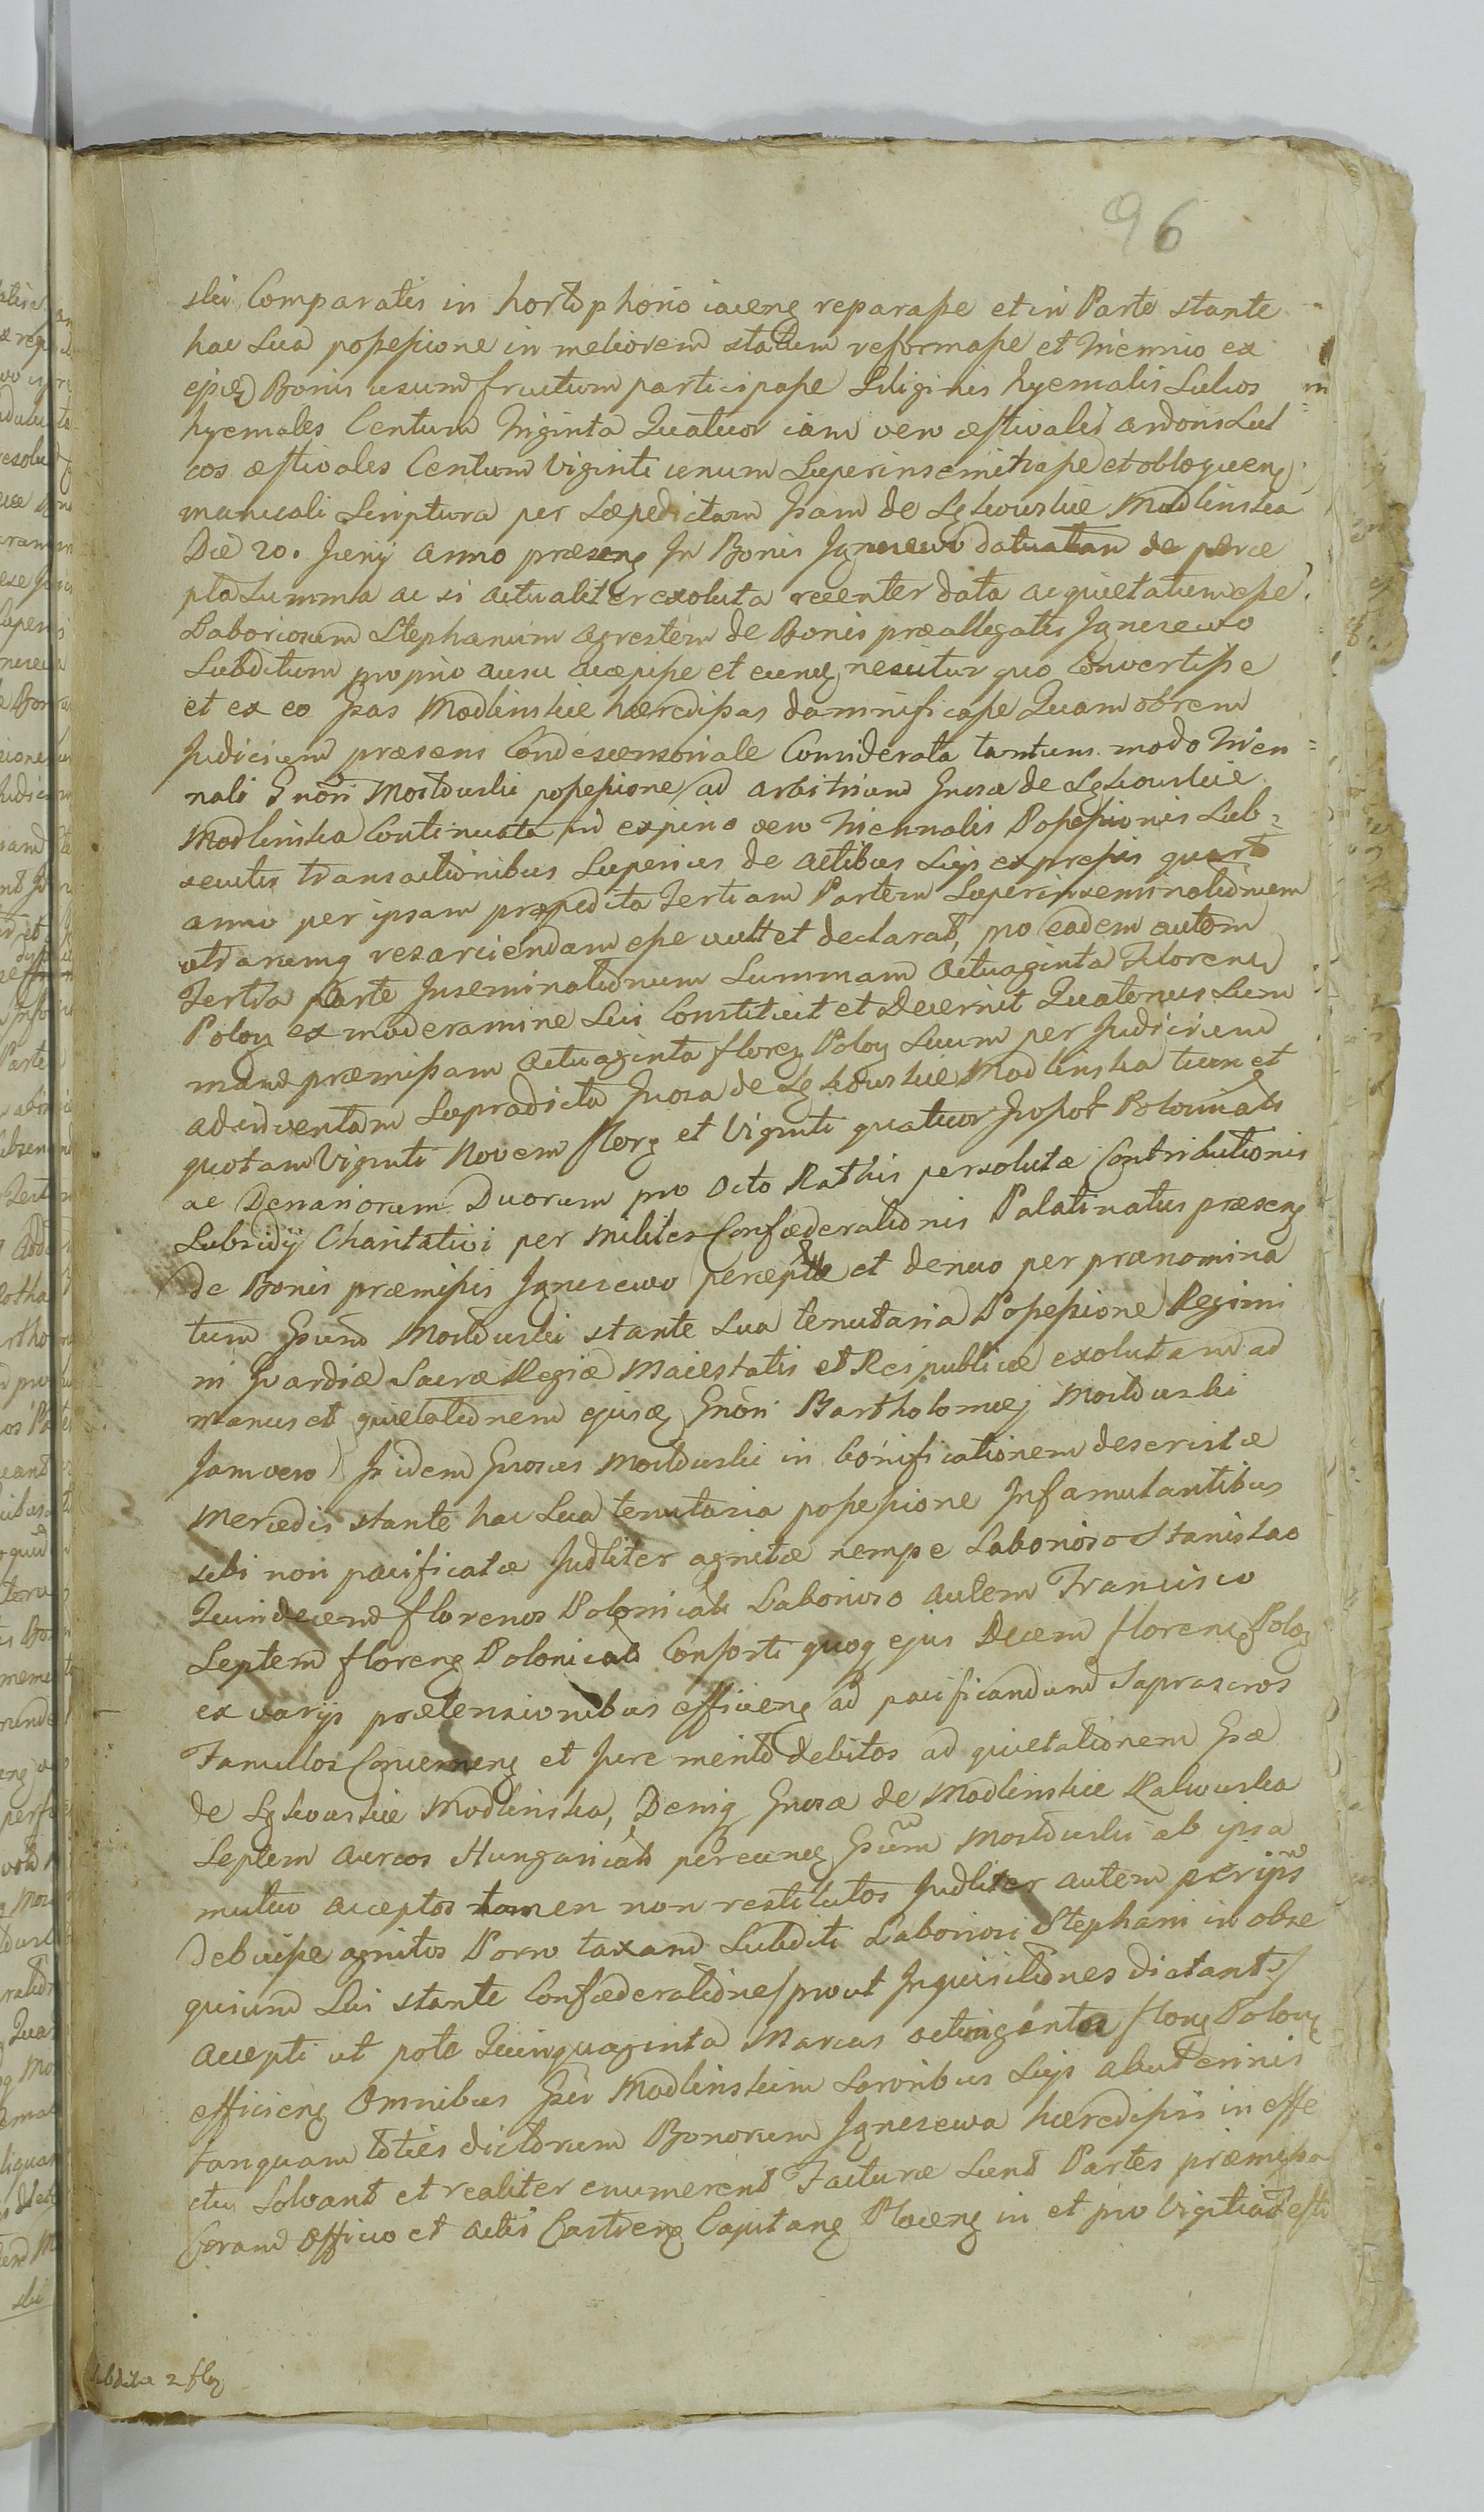 96
slei Comparatis in hortophorio iaceng reparasse et in Parte stante
hac Sua possessione in meliorem statum reformasse et triennio ex
ejusd Bonis usumfructum participasse Siliginis hyemalis Sulcos
hyemales Centum Triginta Quatuor iam vero æstivalis ardonis Sul
cos æstivales Centum Viginti unum Superinseminasse et obloqueng
manuali Scriptura per Sæpedictam Gsam de Lgkowskie Modlinska
Die 20. Junij anno præseng In Bonis Jgnusewo datuatam de perce
pta Summa ac si actualiter exoluta recenter data acquietatum esse
Laboriosum Stephanum agrestem de Bonis præallegatis Jgnusewo
Subditum proprio ausu accepisse et eunq nescitur quo Convertisse
et ex eo Gsas Modlinskie hæredissas damnificasse Quamobrem
Judicium præsens Condescensoriale Considerata tantum modo Trien =
nali G nori Mostowski possessione ad arbitrium Gnosæ de Lgkowskie
Modlinska Continuata, in expirio vero triennalis Possessionis Sub =
secutis transactionibus Superius de actibus Sujs expressis quarto
anno per ipsam præpedita Tertiam Partem Superinseminationem
utrarumq resarciendam esse vult et declarat, pro eadem autem
Tertia Parte Inseminationum Summam Octuaginta Floreng
Polog ex moderamine Sui Constituit et Decernit Quatenus Sum
mam præmissam Octuaginta floreg Polog Suum per Judicium
adinventam Sæpradicta Gnosa de Lgkowskie Modlinska tum et
quotam Viginti Novem florg et Viginti quatuor Gossot Polonicali
ac Denariorum Duorum pro Octo Rathis persolutæ Contributionis
Subsidij Charitativi per milites Confœderationis Palatinatus præseng
de Bonis præmissis Jgnusewo perceptæ et denuo per prænomina
tum Gsum Mostowski stante Sua tenutaria Possessione Regimi
ni Gvardiæ Sacræ Regiæ Maiestatis et Reipublicæ exolutam ad
manus et quietationem ejusq Gnori Bartholomej Mostowski
Jam vero Jsidem Gnosus Mostowski in bonificationem deservitæ
mercedis stante hac Sua tenutaria possessione Infamulantibus
sibi non pacificatæ Judliter agnitæ nempe Laborioso Stanislao
Quindecem florenos Polonicali Laborioso autem Francisco
Septem floreng Polonicali Consorti quoq ejus Decem floreng Polog
ex varijs prætensionibus efficieng ad pacificandum Saprascros
Famullos Concerneng et Jure merito debitos ad quietationem Gsæ
de Lgkowskie Modlinska, Deniq Gnosæ de Modlinskie Rakowska
Septem Aureos Hungaricali per eunq Gsum Mostowski ab ipsa
mutuo acceptos tamen non restitutos Judliter autem per ipsm
Debuisse agnitos Porro taxam Subditi Laboriosi Stephani in obse
quium Sui stante Confœderatione/prout Inquisitiones dictant/
accepti ut pote Quinquaginta Marcas octuaginta florg Polog
efficieng Omnibus Gsis Modlinskim Sororibus Sujs ab uterinis
tanquam toties dictorum Bonorum Jgnusewa hæredissis in effe
ctu Solvant et realiter enumerent Facturæ Sunt Partes præmissa
Coram Officio et Actis Castreng Capitang Ploceng in et pro Vigilia Festi
subdita 2 flg